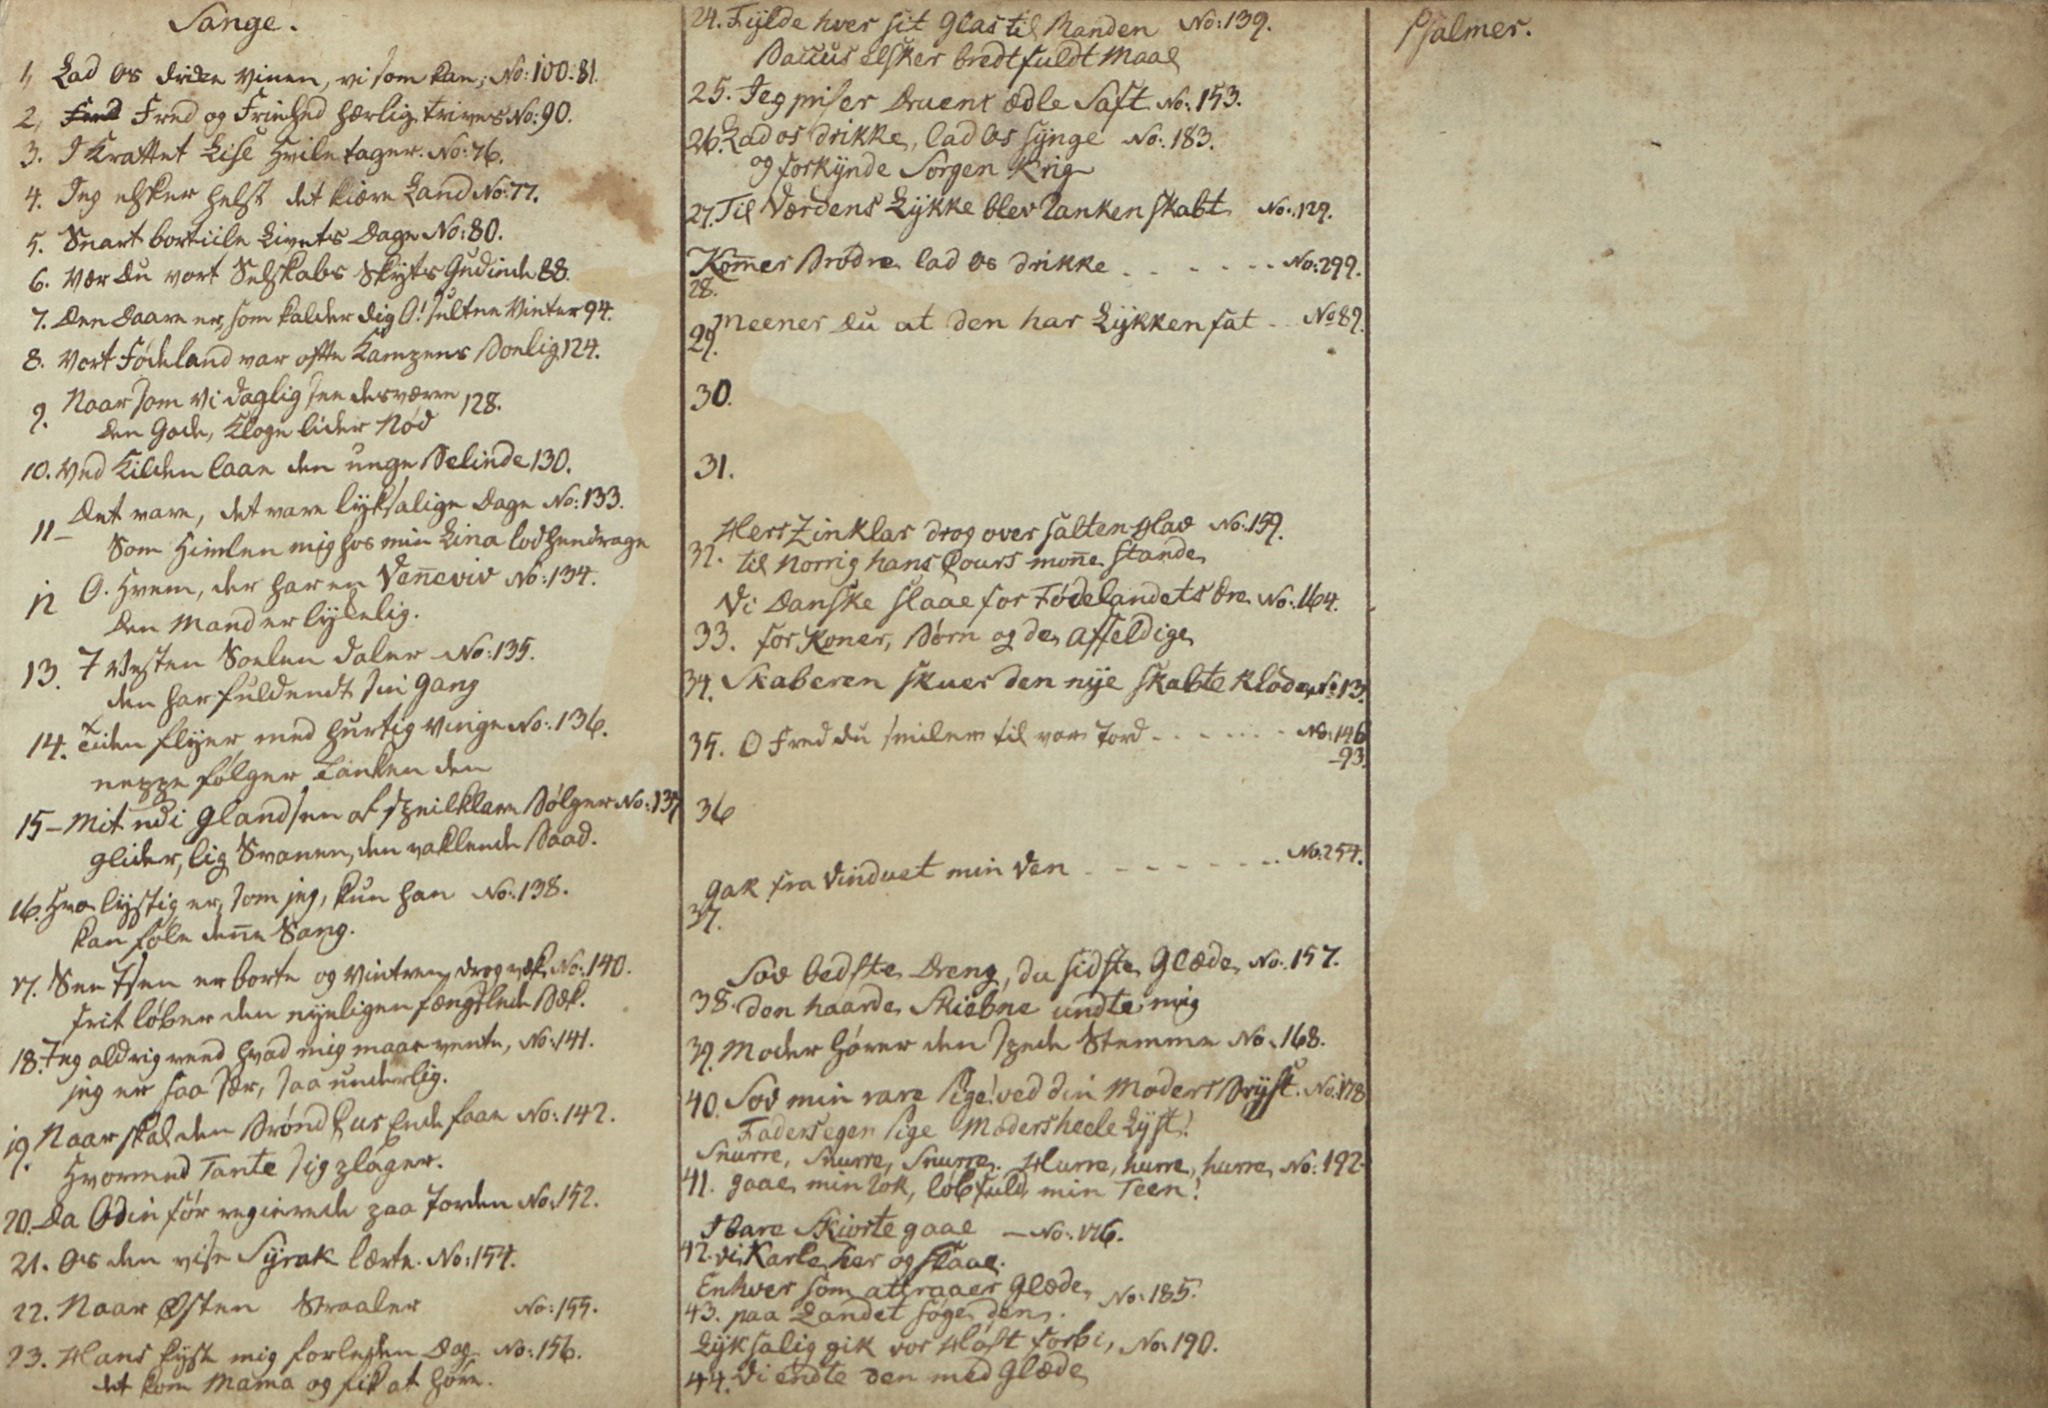 Sange.
1, Lad os drikke Vinen, vi som kan, No: 100. 81.
2, Fred Fred og Friehed herlig trives No: 90.
3. I Krattet Lise Hvile tager. No: 76.
4. Jeg elsker helst det kiære Land No: 77.
5. Snart bortiile Livets Dage No: 80.
6. Vær du vort Selskabs Skyts Gudinde 88.
7. Den Daare er, som kalder dig O! sultne Vinter 94.
8. Vort Fødeland var ofte Kampens Boelig 124.
9. Naar som vi daglig see desværre 128.
den Gode, Kloge lider Nød
10. Ved Kilden laae den unge Belinde 130.
11 – Det vare, det vare lyksalige Dage No: 133.
Som Himlen mig hos min Lina lod hendrage
12 O. Hvem, der har en Venneviv No: 134.
den Mand er lykkelig.
13. I Vesten Soelen daler No: 135.
den har fuldendt sin Gang
14. Tiden flyer med hurtig Vinge No: 136.
neppe følger Tanken den
15 – Mit udi Glandsen af speilklare Bølger No: 137
glider, lig Svanen, den vaklende Baad.
16. Hvo lystig er, som jeg, kun han No: 138.
kan føle denne Sang.
17. See Isen er borte og Vintren drog væk No: 140.
frit løber den nyeligen fængslede Bæk.
18. Jeg aldrig veed hvad mig maae vente, No: 141.
jeg er saa sær, saa underlig.
19. Naar skal den Brønd kur Ende faae No: 142.
Hvormed Tante sig plager.
20. Da Odin før regierede paa Jorden No: 152.
21. Os den vise Syrak lærte. No: 154.
22. Naar Østen Straaler No: 155.
23. Hans kyste mig forleden Dag No: 156.
det kom Mama og fik at høre.
24. Fylde hver sit Glas til Randen No: 139.
Baccus elsker bredtfuldt Maal
25. Jeg priser Druens ædle Saft No: 153.
26. Lad os drikke, lad os synge No: 183.
og forkynde Sorgen Krig
27. Til Verdens Lykke blev Ranken skabt No: 129.
Kommer Brødre lad os drikke . . . . . . . No: 299.
28.
Meener du at den har Lykken fat . . No 89.
29.
30.
31.
Herr Zinklar drog over salten Hav No: 159.
32. til Norrig hans Cours monne stande
Vi Danske slaae for Fødelandets Ære No: 164.
33. for Koner, Børn og de affeldige
34. Skaberen skuer den nye skabte Klode, No 13.
35. O Fred du smiler til vor Jord . . . . . . . No: 146
– 93.
36
Gak fra Vinduet min Ven . . . . . . . . No: 254.
37.
Sov bedste Dreng, du sidste Glæde No: 157.
38. den haarde Skiebne undte mig
39. Moder hører den spede Stemme No: 168.
40. Sov min rare Pige! ved din Moders Bryst. No: 178
Faders egen Pige Moders heele Lyst!
Snurre, Snurre, Snurre. Hurre, hurre, hurre, No: 192
41. gaae min Rok, løb fuld min Teen!
I bare Skiorte gaae – No: 176.
42. vi Karle her og slaae.
Enhver som attraaer Glæde, No: 185.
43. paa Landet søge den.
Lyksalig gik vor Høst forbi, No 190.
44. Vi endte den med Glæde
Psalmer.